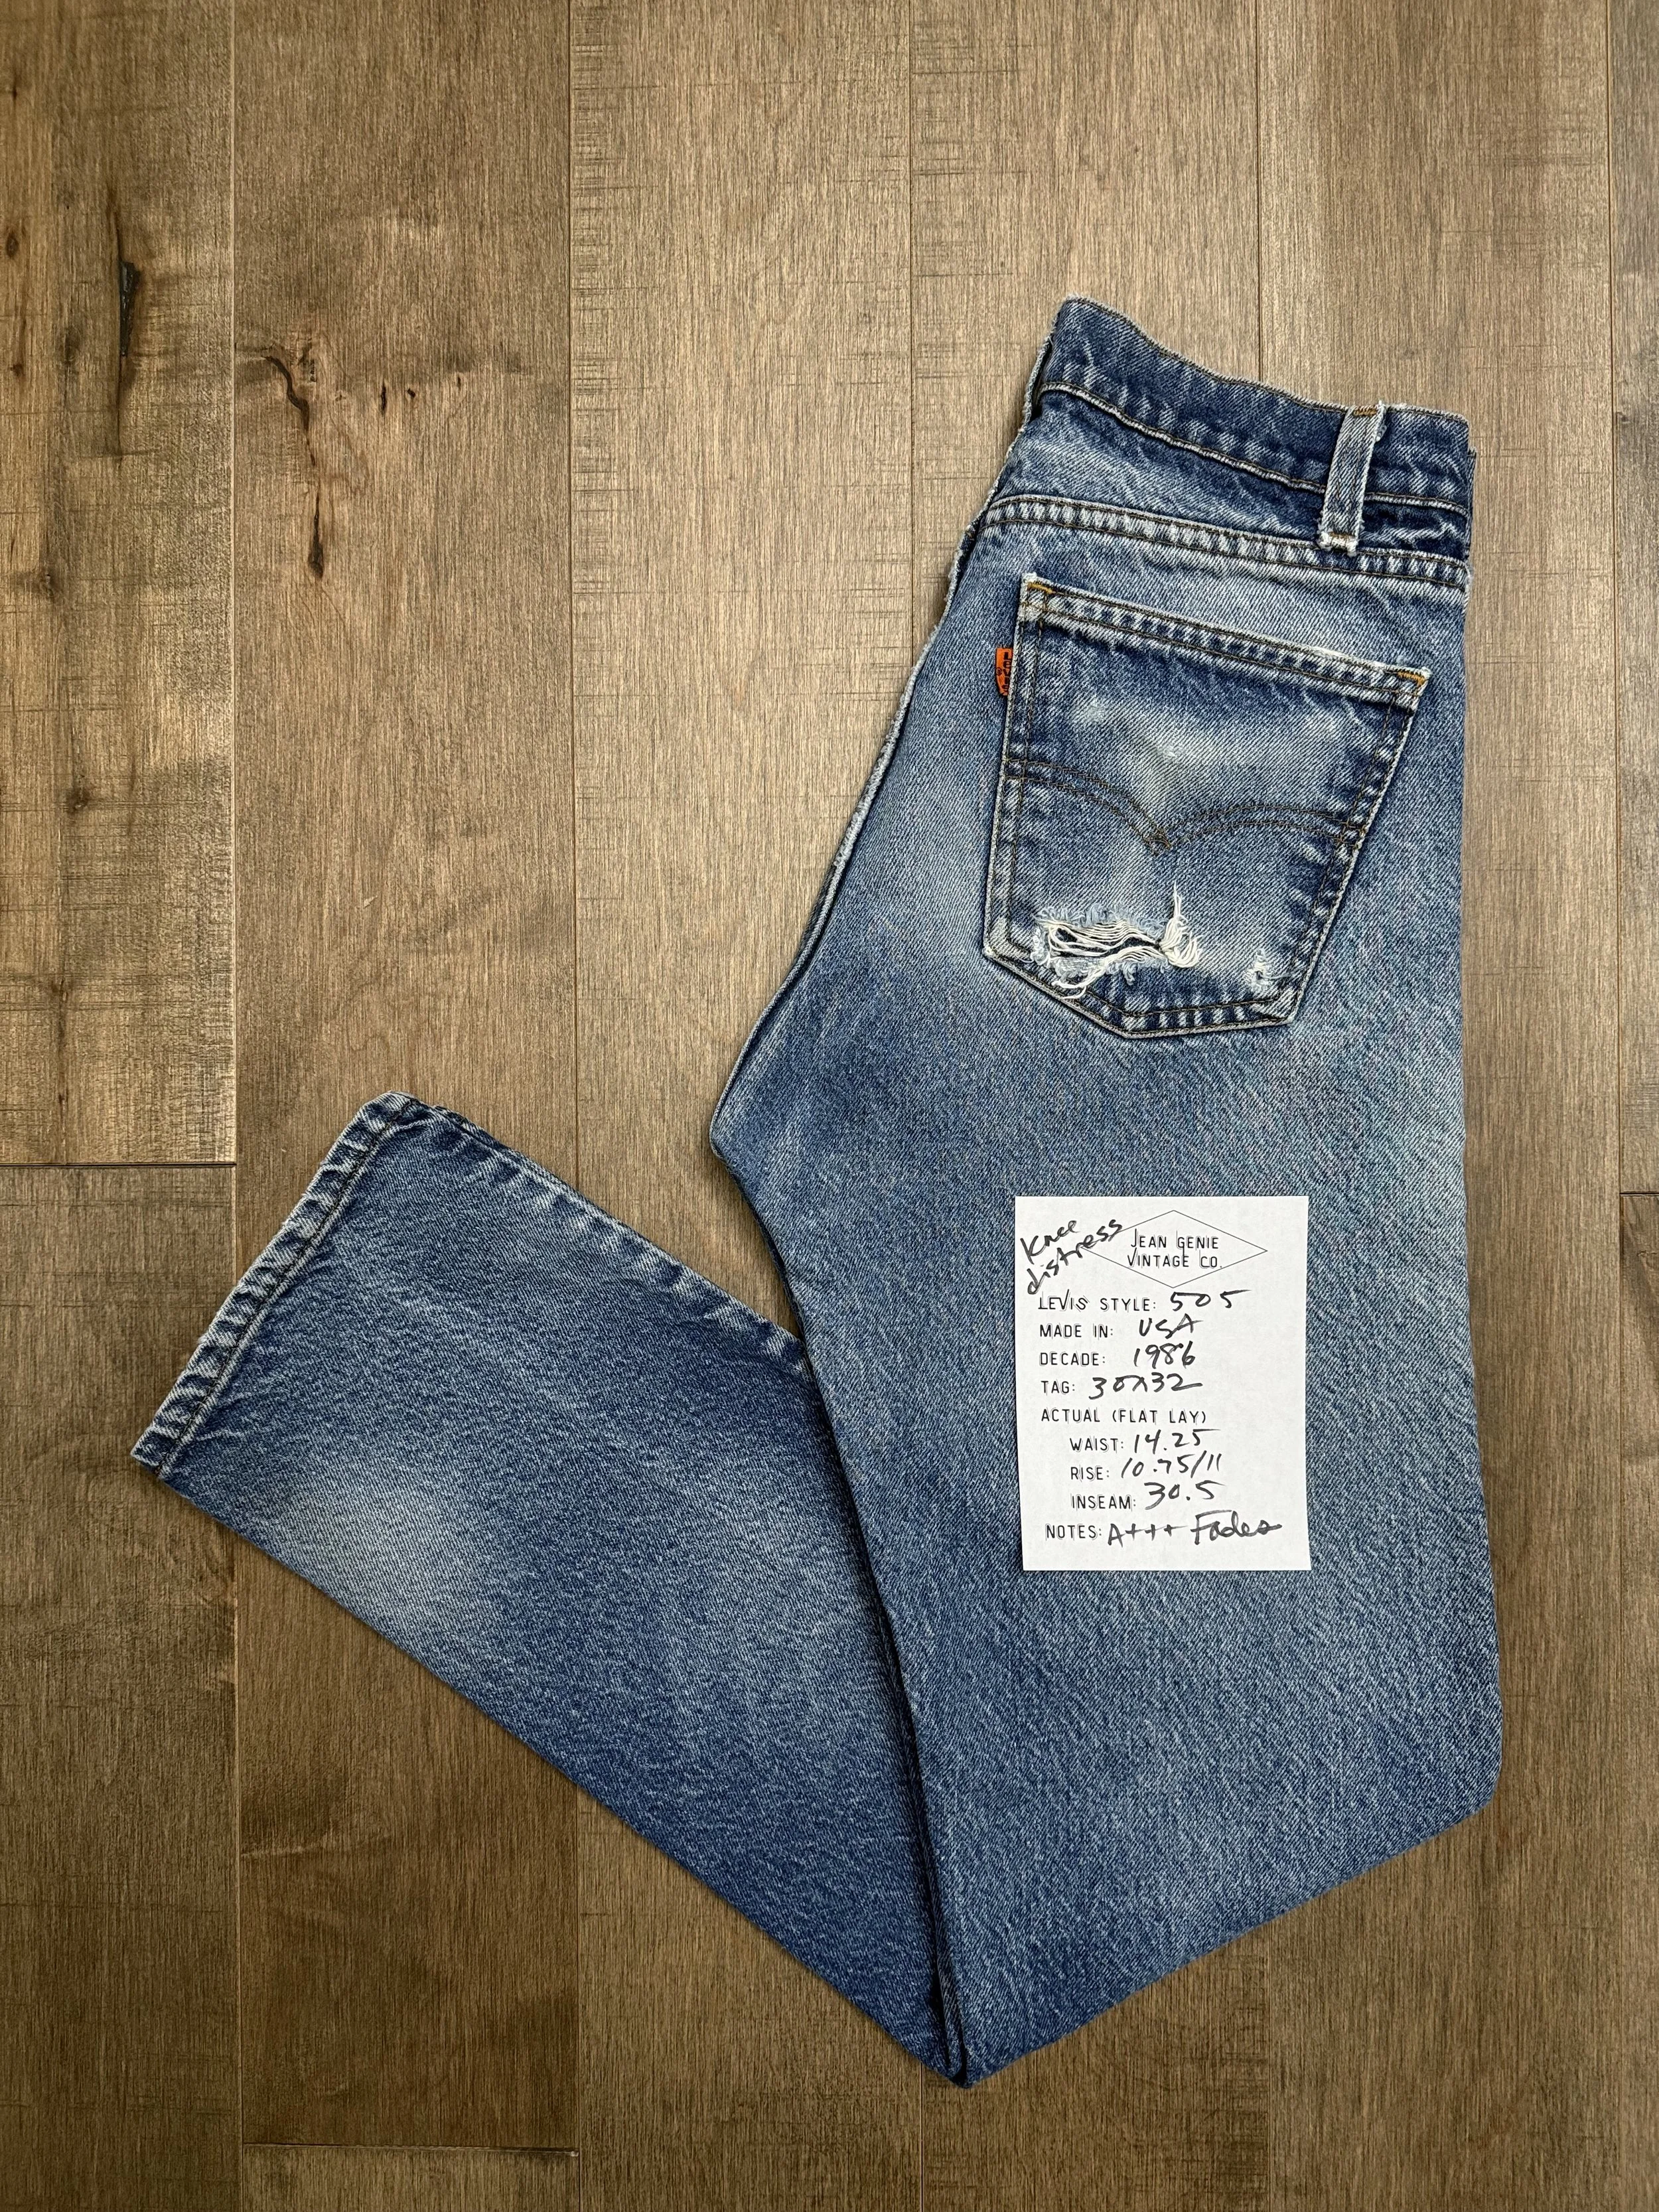 LEVI'S
Knee
distress
JEAN GENIE
VINTAGE CO.
LEVIS STYLE: 505
MADE IN: USA
DECADE: 1986
TAG: 30X32
ACTUAL (FLAT LAY)
WAIST: 14.25
RISE: 10.75/11
INSEAM: 30.5
NOTES: A+++ Fades